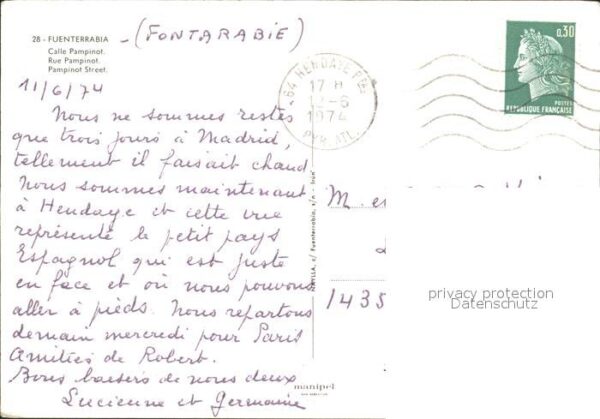 28 - FUENTERRABIA
Calle Pampinot.
Rue Pampinot.
Pampinot Street.
- (FONTARABIE)
11/6/74
Nous ne sommes restés
que trois jours à Madrid,
tellement il faisait chaud
Nous sommes maintenant
à Hendaye et cette vue
représente le petit pays
Espagnol qui est juste
en face et où nous pouvons
aller à pieds. Nous repartons
demain mercredi pour Paris
Amitiés de Robert.
Bons baisers de nous deux
Lucienne et Germaine
64 HENDAYE
17 H
12-6
1974
PYR. ATL.
0,30
POSTES
RÉPUBLIQUE FRANÇAISE
M. et
1435
privacy protection
Datenschutz
manipel